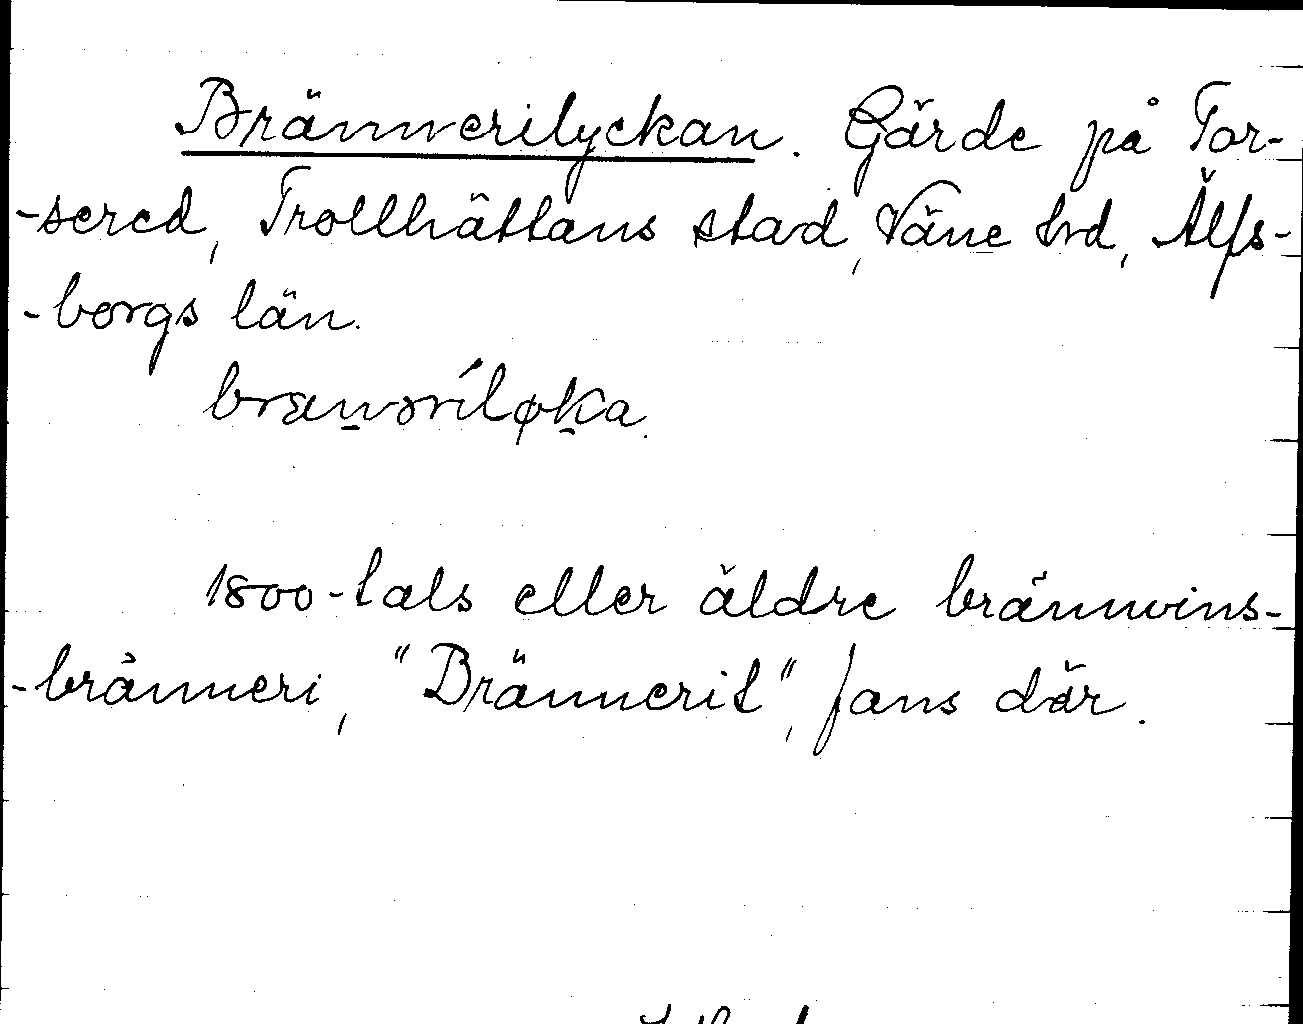 Brännerilyckan. Gärde på Tor-
-sered, Trollhättans stad, Väne hrd, Älfs-
-borgs län.
bræn̲əríløk̲a.
1800-tals eller äldre brännvins-
-bränneri, "Brännerit", fans där.